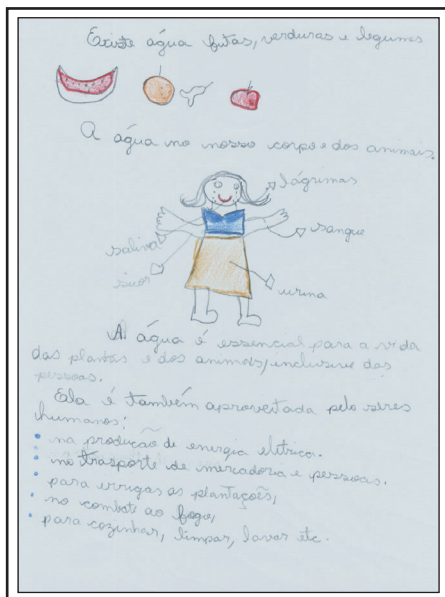 Existe água frutas, verduras e legumes
A água no nosso corpo e dos animais.
lágrimas
saliva
sangue
suor
urina
A água é essencial para a vida
das plantas e dos animais, inclusive das
pessoas.
Ela é também aproveitada pelo seres
humanos:
• na produção de energia elétrica.
• no trasporte de mercadoria e pessoas.
• para irrigas as plantações,
• no combate ao fogo,
• para cozinhar, limpar, lavar etc.